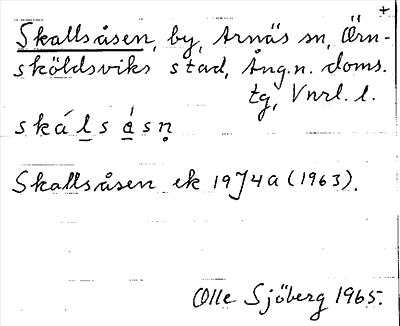 +
Skallsåsen, by, Arnäs sn, Örn-
sköldsviks stad, Ång.n. doms.
tg, Vnrl. l.
skál̲s á̲sṇ
Skallsåsen ek 19J4a (1963).
Olle Sjöberg 1965.